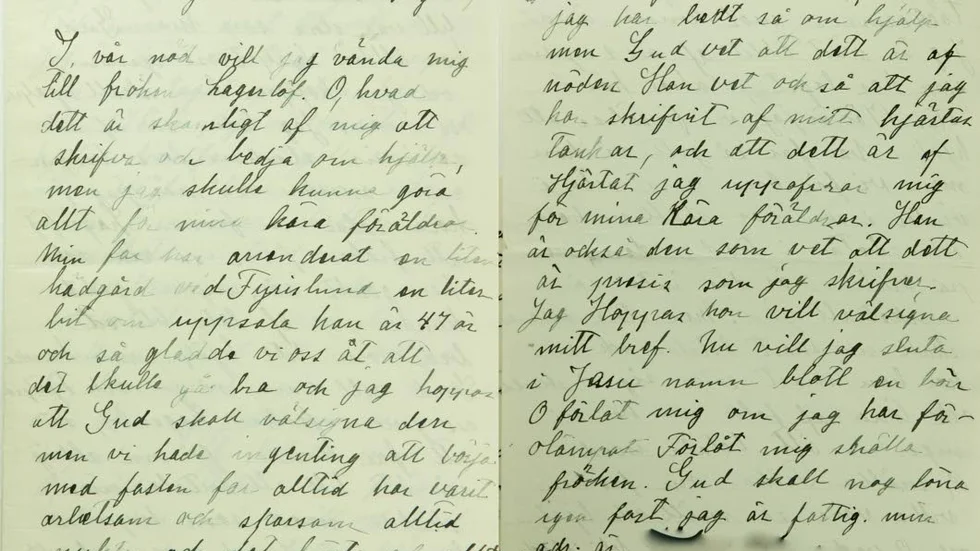 I, vår nöd vill jag vända mig
till fröken Lagerlöf. O, hvad
dett är skamligt af mig att
skrifva och bedja om hjälp,
men jag skulle kunna göra
allt för mina kära föräldrar.
Min far har arrenderat en liten
hädgård vid Fyrislund en liten
bit om uppsala han är 47 år
och så gladde vi oss åt att
det skulle gå bra och jag hoppas
att Gud skall välsigna den
men vi hade ingenting att börja
med fasten far alltid har varit
arbetsam och sparsam alltid
jag har bedt så om hjälp
men Gud vet att dett är af
nöden Han vet också att jag
har skrifvit af mitt hjärtas
tankar, och att dett är af
Hjärtat jag uppofrar mig
för mina Kära föräldrar. Han
är också den som vet att dett
är presis som jag skrifver.
Jag Hoppas han vill välsigna
mitt bref. Nu vill jag sluta
i Jesu namn blott en bön
O förlåt mig om jag har för-
olämpat Förlåt mig snälla
fröken. Gud skall nog löna
igen fast jag är fattig. min